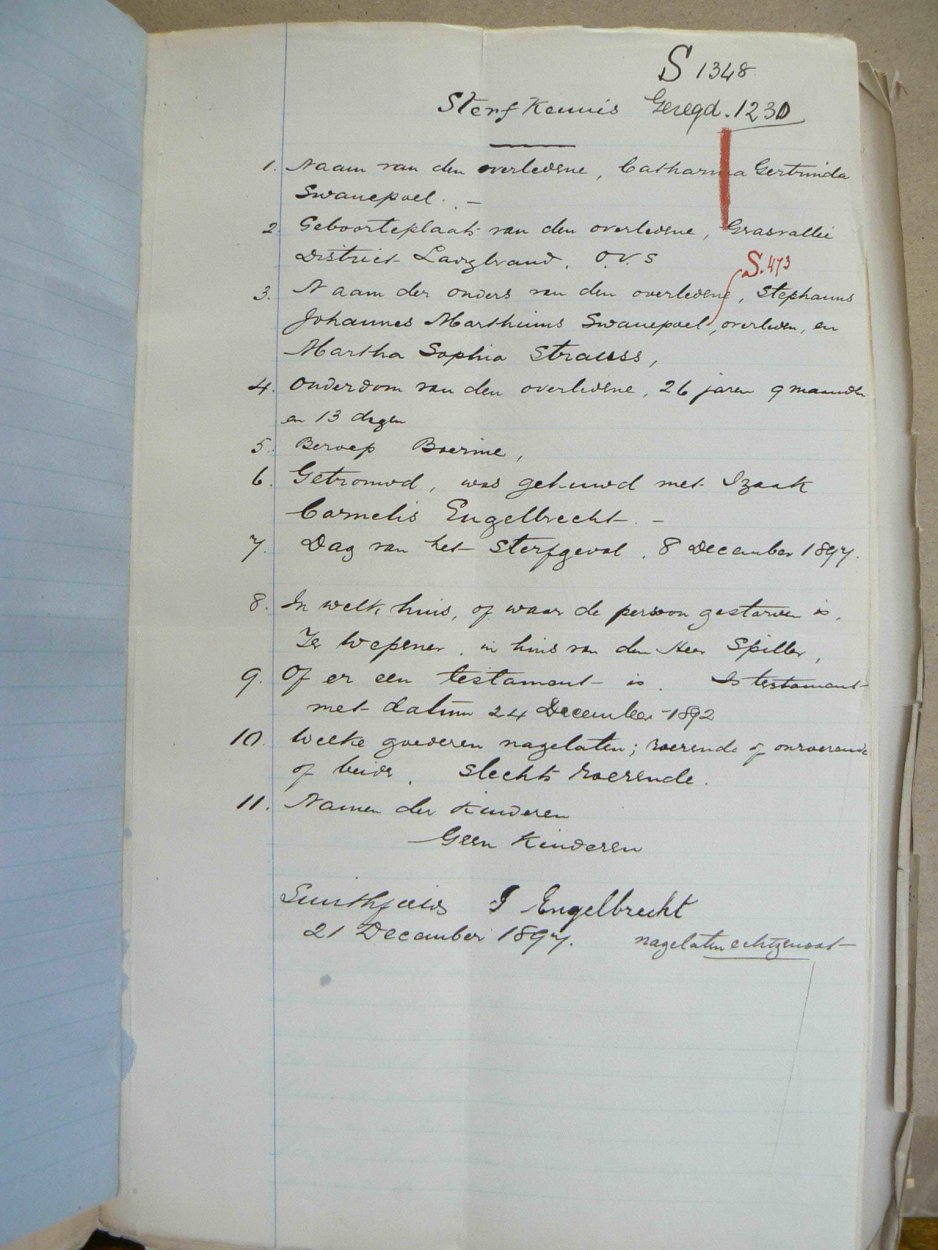 S 1348
Sterf Kennis Geregd. 1230
1. Naam van den overledene, Catharina Gertruida
Swanepoel. –
2. Geboorteplaats van den overledene, Grasvallei
District Ladybrand, O.V.S
S. 473
3. Naam der ouders van den overledene, Stephanus
Johannes Marthinus Swanepoel, overleden, en
Martha Sophia Strauss,
4. Ouderdom van den overledene, 26 jaren 9 maanden
en 13 dagen
5. Beroep Boerine,
6. Getrouwd, was gehuwd met Izaak
Cornelis Engelbrecht. –
7. Dag van het sterfgeval. 8 December 1897.
8. In welk huis, of waar de persoon gestorven is,
Te Wepener, in huis van den Heer Spiller,
9. Of er een testament is. Is testament
met datum 24 December 1892
10. Welke goederen nagelaten; roerende of onroerende
of beide. slechts roerende.
11. Namen der Kinderen
Geen Kinderen
Smithfield I Engelbrecht
21 December 1897. nagelaten echtgenoot